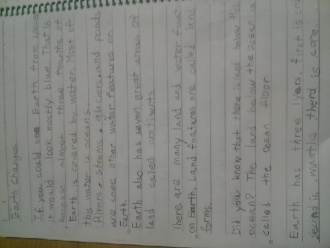 Earth Changes
If you could see Earth from
it would look mostly blue. That is
because almost three fourths of
Earth is covered by water. Most of
this water is oceans.
Rivers, streams, glaciers, and ponds
are some other water features on
Earth.
Earth also has seven great areas of
land called continents
There are many land and water
on Earth. Land features are called land
forms.
Did your know that there is land below the
ocean? The land below the ocean is
called the ocean floor
Earth has three layers first is
is mantle there is core